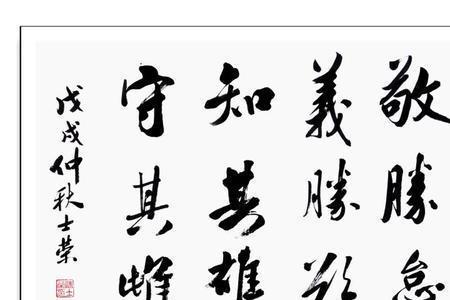 敬勝怠
義勝欲
知其雄
守其雌
戊戌仲秋士荣